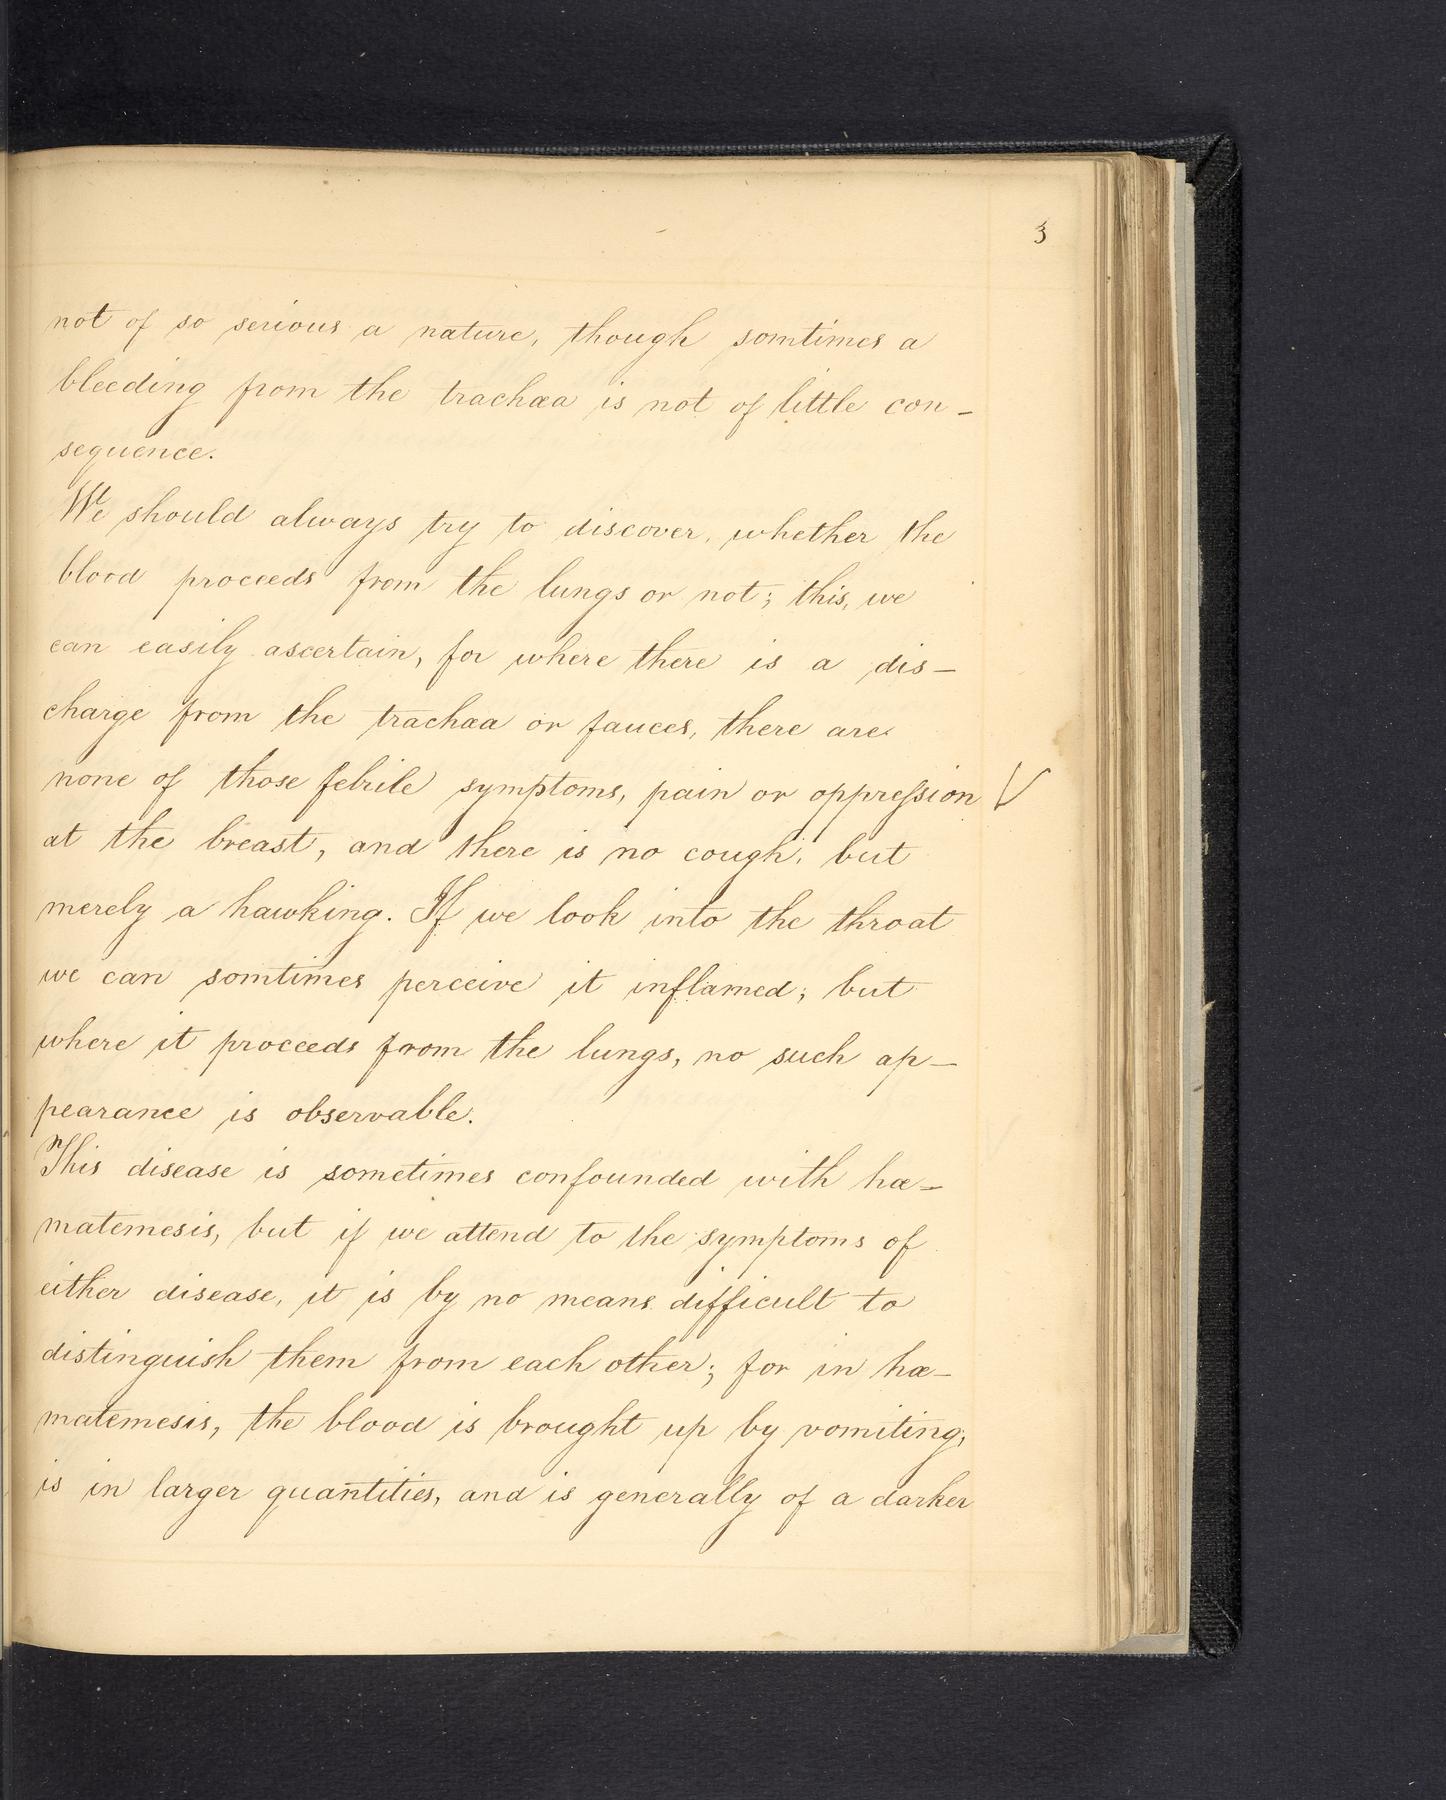 3
not of so serious a nature, though somtimes a
bleeding from the trachæa is not of little con-
sequence.
We should always try to discover, whether the
blood proceeds from the lungs or not; this, we
can easily ascertain, for where there is a dis-
charge from the trachæa or fauces, there are
none of those febrile symptoms, pain or oppression V
at the breast, and there is no cough, but
merely a hawking. If we look into the throat
we can somtimes perceive it inflamed; but
where it proceeds from the lungs, no such ap-
pearance is observable.
This disease is sometimes confounded with hæ-
matemesis, but if we attend to the symptoms of
either disease, it is by no means difficult to
distinguish them from each other; for in hæ-
matemesis, the blood is brought up by vomiting,
is in larger quantities, and is generally of a darker